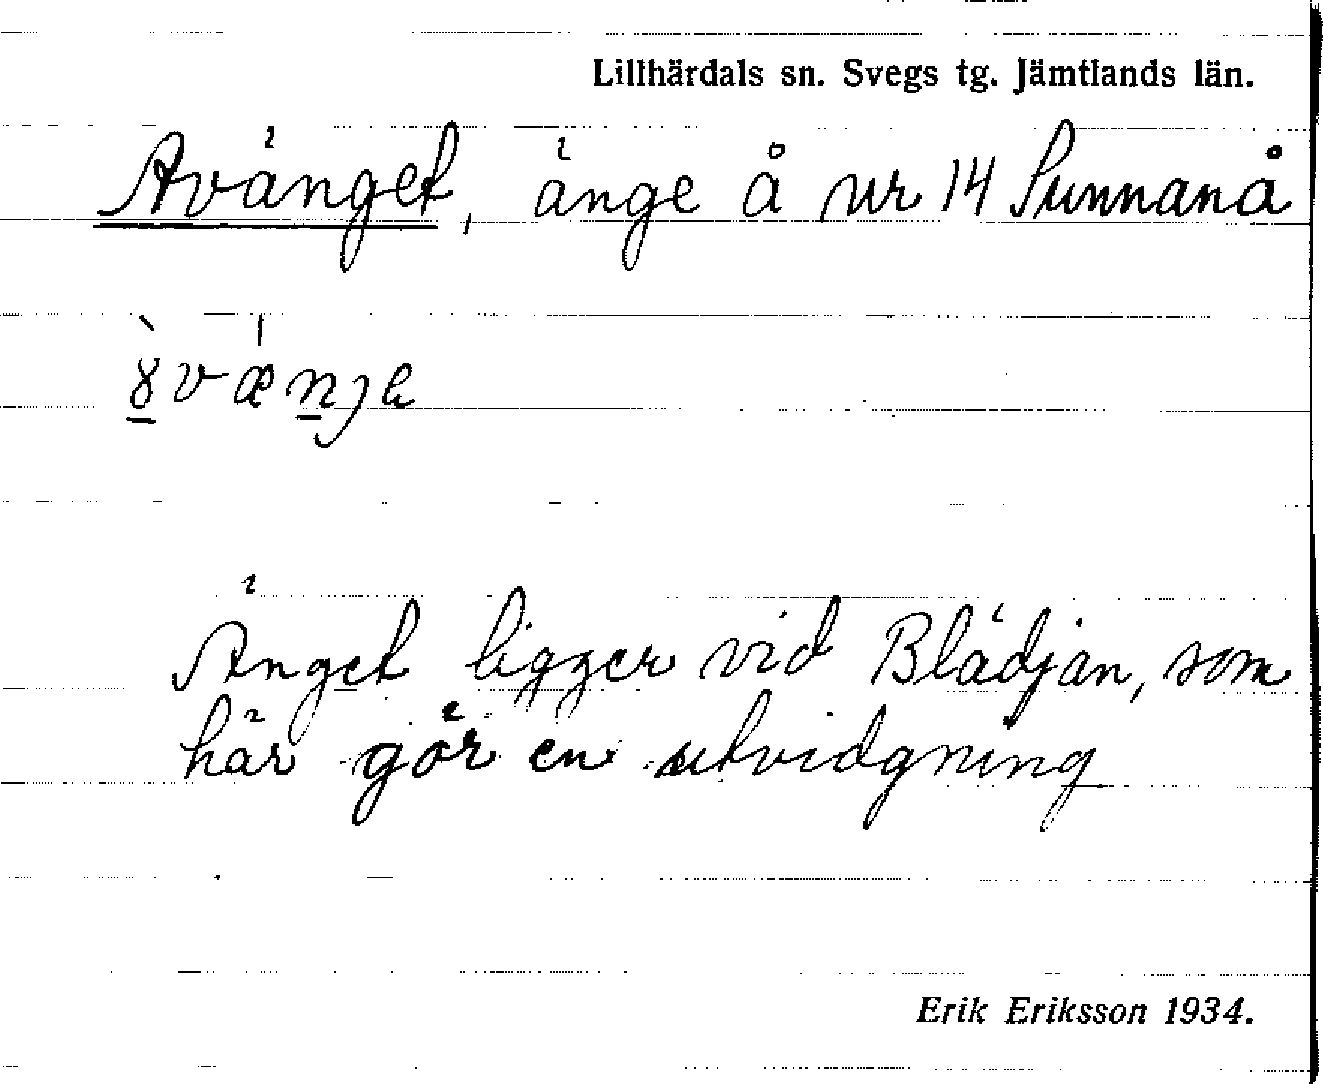 Lillhärdals sn. Svegs tg. Jämtlands län.
Avänget, änge å nr 14 Sunnanå
Änget ligger vid Blädjan, som
här gör en utvidgning
Erik Eriksson 1934.